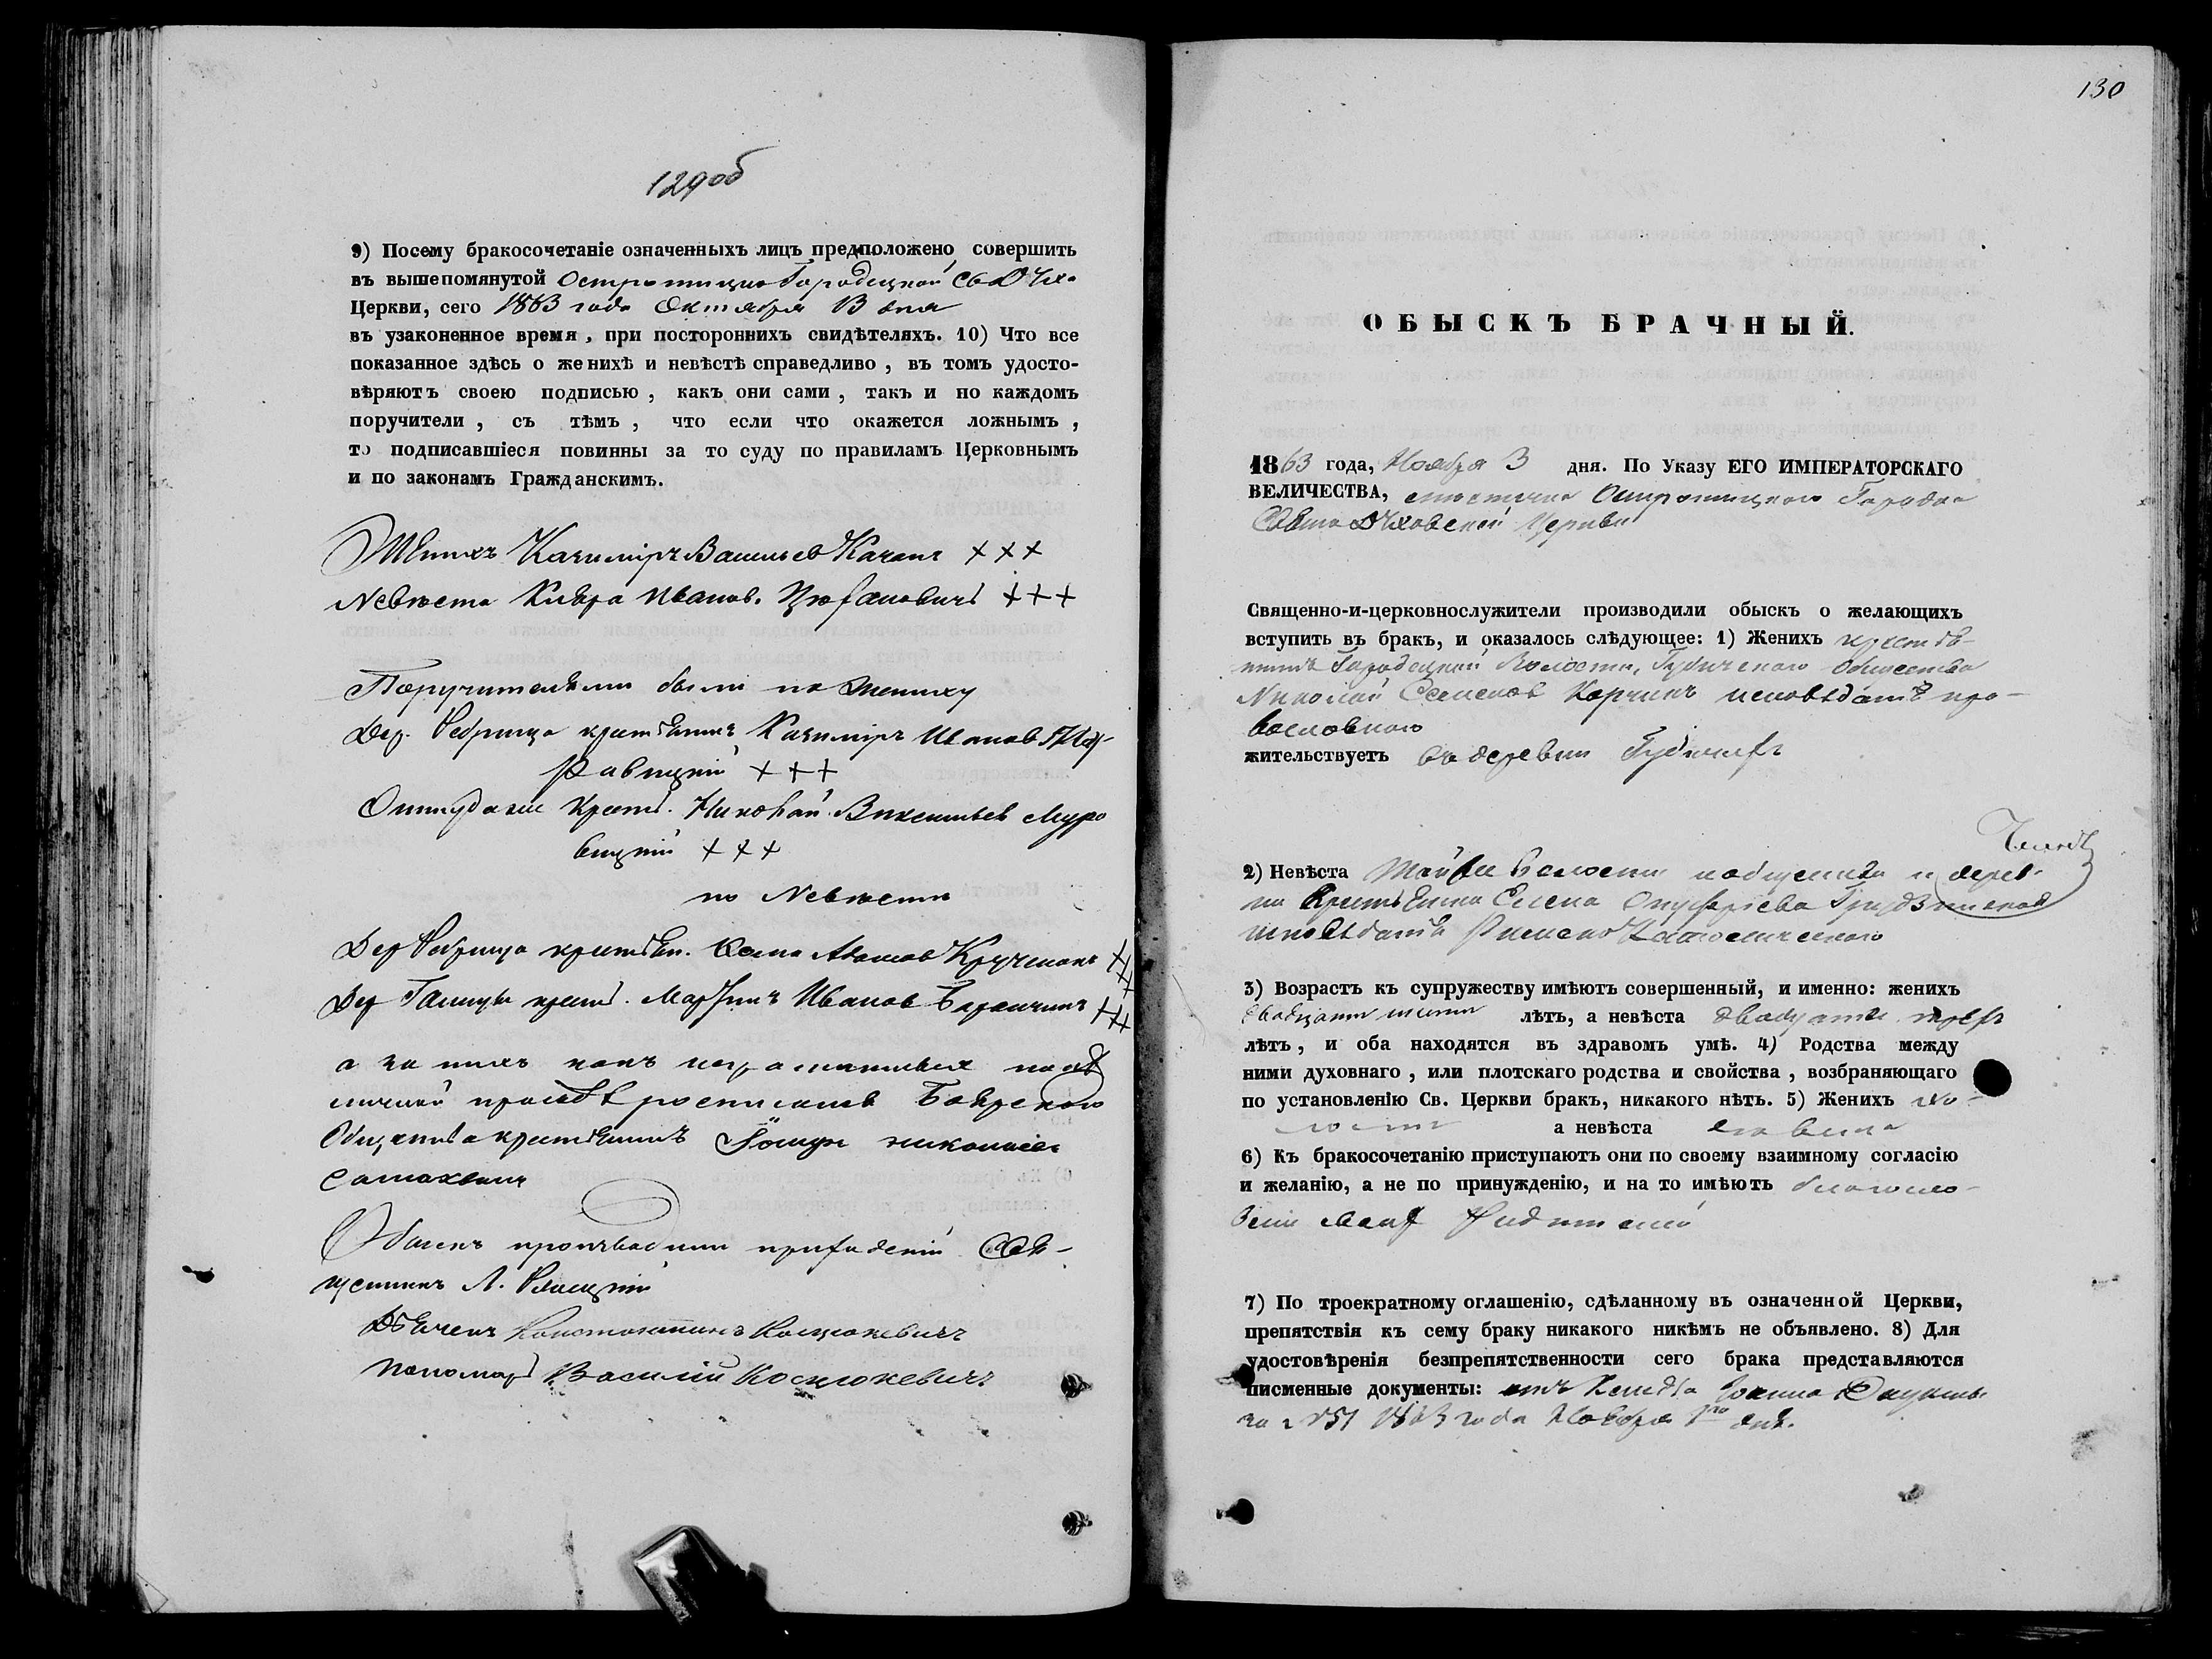 129об
9) Посему бракосочетаніе означенныхъ лицъ предположено совершить
въ вышепомянутой Острошицко Городецкой Св Дхо
Церкви, сего 1863 года Октября 13 дня
въ узаконенное время, при постороннихъ свидѣтеляхъ. 10) Что все
показанное здѣсь о женихѣ и невѣстѣ справедливо, въ томъ удосто-
вѣряютъ своею подписью, какъ они сами, такъ и по каждомъ
поручители, съ тѣмъ, что если что окажется ложнымъ,
то подписавшіеся повинны за то суду по правиламъ Церковнымъ
и по законамъ Гражданскимъ.
Женихъ Казиміръ Васильев Качанъ +++
Невѣста Иванов. +++
Поручителями были по жениху
Дер. крестьянинъ Казиміръ Иванов
+++
Оттудаже крест. Николай Викентьев Муро
вицкій +++
по Невѣсти
Дер крестьян. Иванов +++
Дер крест. Мартинъ Иванов +++
а за нихъ какъ неграмотныхъ по
личной прозьбѣ росписался
Общества крестьянинъ
Обыскъ производили приходскій Свя-
щенникъ Л.
Дьячекъ Константинъ Косцюкевичъ
Пономарь Василій Косцюкевичъ
130
ОБЫСКЪ БРАЧНЫЙ.
1863 года, Ноября 3 дня. По Указу ЕГО ИМПЕРАТОРСКАГО
ВЕЛИЧЕСТВА, мѣстечка Острошицкого Городка
Свято Духовской Церкви
Священно-и-церковнослужители производили обыскъ о желающихъ
вступить въ бракъ, и оказалось слѣдующее: 1) Женихъ крестья-
нинъ Городецкой Волости, Общества
Николай Семенов Корчикъ исповѣданія пра-
вославного
жительствуетъ въ деревни
2) Невѣста Волости общества и дерев-
ни Крестьянка Елена
исповѣданія Римско Католического
3) Возрастъ къ супружеству имѣютъ совершенный, и именно: женихъ
двадцати шести лѣтъ, а невѣста двадцати трехъ
лѣтъ, и оба находятся въ здравомъ умѣ. 4) Родства между
ними духовнаго, или плотскаго родства и свойства, возбраняющаго
по установленію Св. Церкви бракъ, никакого нѣтъ. 5) Женихъ хо-
лостъ а невѣста дѣвица
6) Къ бракосочетанію приступаютъ они по своему взаимному согласію
и желанію, а не по принужденію, и на то имѣютъ благосло-
веніе своихъ Родителей
7) По троекратному оглашенію, сдѣланному въ означенной Церкви,
препятствія къ сему браку никакого никѣмъ не объявлено. 8) Для
удостовѣренія безпрепятственности сего брака представляются
писменные документы: отъ Ксендза Іоанна
за № 51 1863 года Ноября 1го дня.